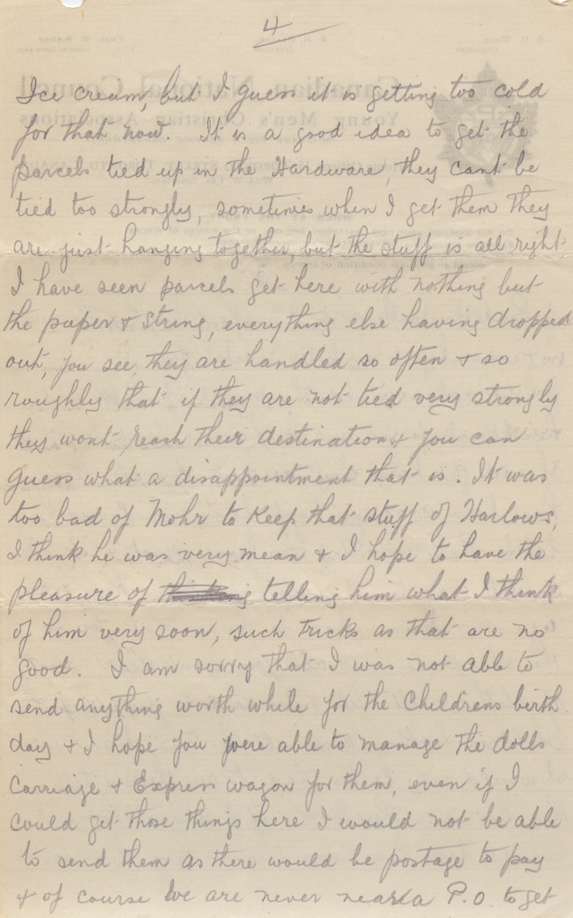 4
Ice cream, but I guess it is getting too cold
for that now. It is a good idea to get the
parcels tied up in the Hardware, they cant be
tied too strongly, sometimes when I get them they
are just hanging together, but the stuff is all right
I have seen parcels get here with nothing but
the paper & string, everything else having dropped
out, you see, they are handled so often & so
roughly that if they are not tied very strongly
they wont reach their destination & you can
guess what a disappointment that is. It was
too bad of Mohr to keep that stuff of Harlows,
I think he was very mean & I hope to have the
pleasure of telling him what I think
of him very soon, such tricks as that are no
good. I am sorry that I was not able to
send anything worth while for the Childrens birth
day & I hope you were able to manage the dolls
Carriage & Express wagon for them, even if I
could get those things here I would not be able
to send them as there would be postage to pay
& of course we are never near a P.O. to get